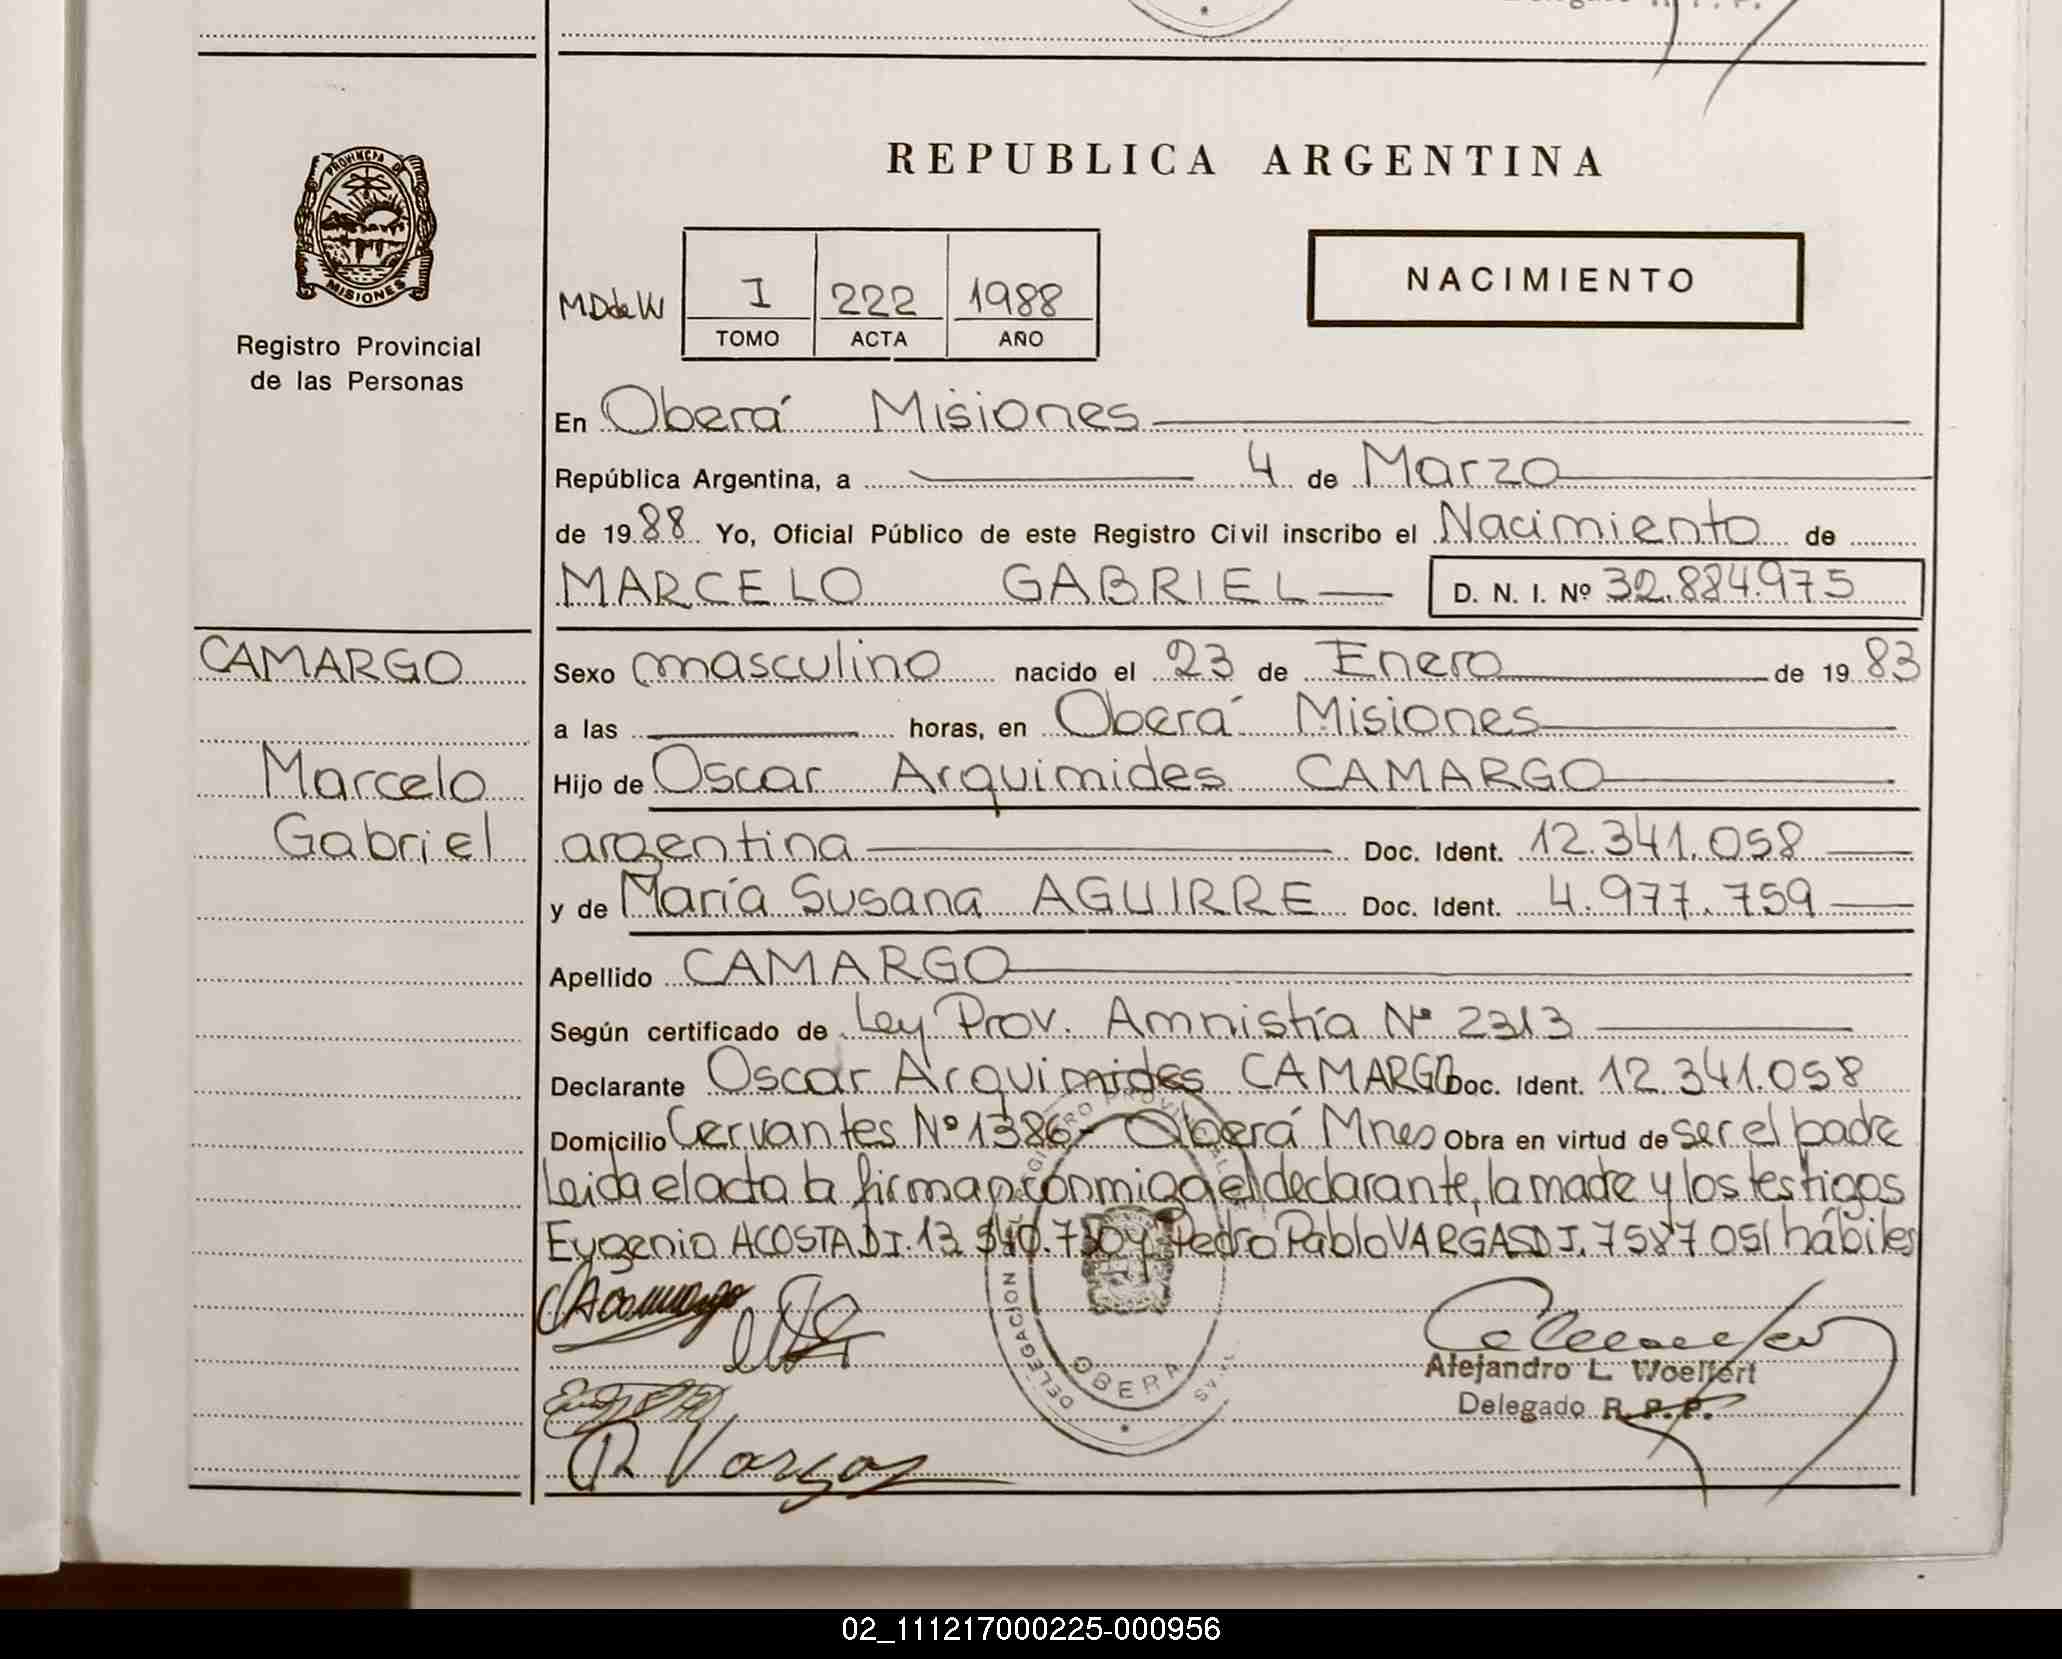 REPUBLICA ARGENTINA
PROVINCIA DE
MISIONES
Registro Provincial
de las Personas
NACIMIENTO
MDdeW I 222 1988
TOMO ACTA AÑO
En Oberá Misiones
República Argentina, a 4 de Marzo
de 1988 Yo, Oficial Público de este Registro Civil inscribo el Nacimiento de
MARCELO GABRIEL D. N. I. Nº 32.884.975
CAMARGO
Marcelo
Gabriel
Sexo masculino nacido el 23 de Enero de 1983
a las horas, en Oberá Misiones
Hijo de Oscar Arquimides CAMARGO
argentina Doc. Ident. 12.341.058
y de María Susana AGUIRRE Doc. Ident. 4.977.759
Apellido CAMARGO
Según certificado de Ley Prov. Amnistía Nº 2313
Declarante Oscar Arquimides CAMARGO Doc. Ident. 12.341.058
Domicilio Cervantes Nº 1386- Oberá Mnes Obra en virtud de ser el padre
Leida el acta la firman conmigo el declarante, la madre y los testigos
Eugenio ACOSTA DI. 13 y Pedro Pablo VARGAS DI. 7587051 hábiles
DELEGACION OBERA
Vargas
Alejandro L. Woelfert
Delegado R. P. P.
02_111217000225-000956